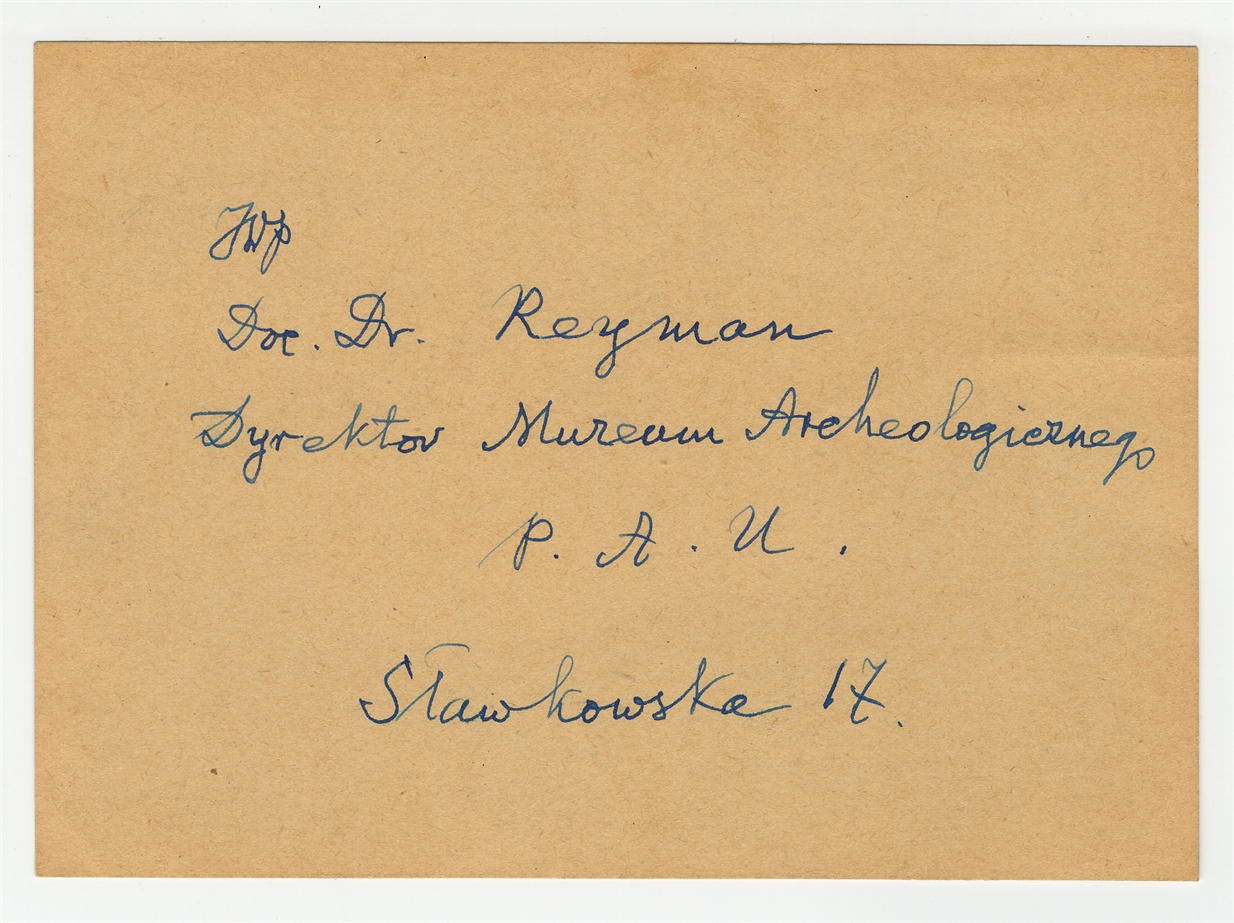 JWP
Doc. Dr. Reyman
Dyrektor Muzeum Archeologicznego
P. A. U.
Sławkowska 17.